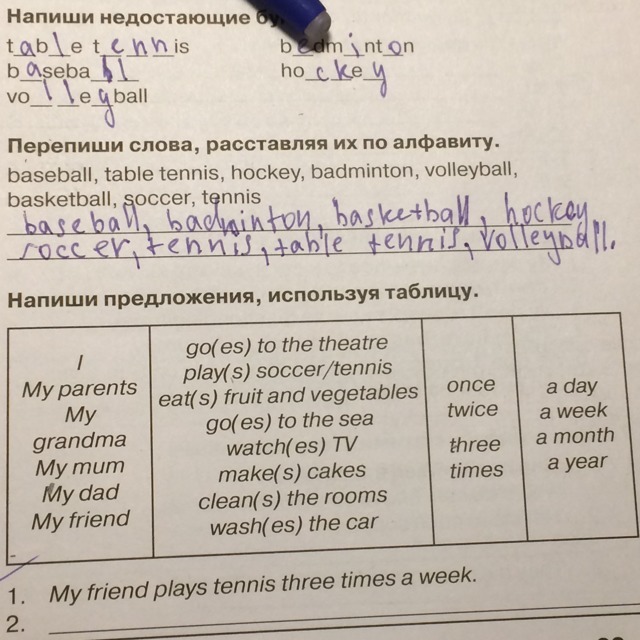 Напиши недостающие бу
table tennis bedminton
baseball hockey
volleyball
Перепиши слова, расставляя их по алфавиту.
baseball, table tennis, hockey, badminton, volleyball,
basketball, soccer, tennis
baseball, badminton, basketball, hockey
soccer, tennis, table tennis, volleyball.
Напиши предложения, используя таблицу.
I
My parents
My
grandma
My mum
My dad
My friend
go(es) to the theatre
play(s) soccer/tennis
eat(s) fruit and vegetables
go(es) to the sea
watch(es) TV
make(s) cakes
clean(s) the rooms
wash(es) the car
once
twice
three
times
a day
a week
a month
a year
1. My friend plays tennis three times a week.
2.